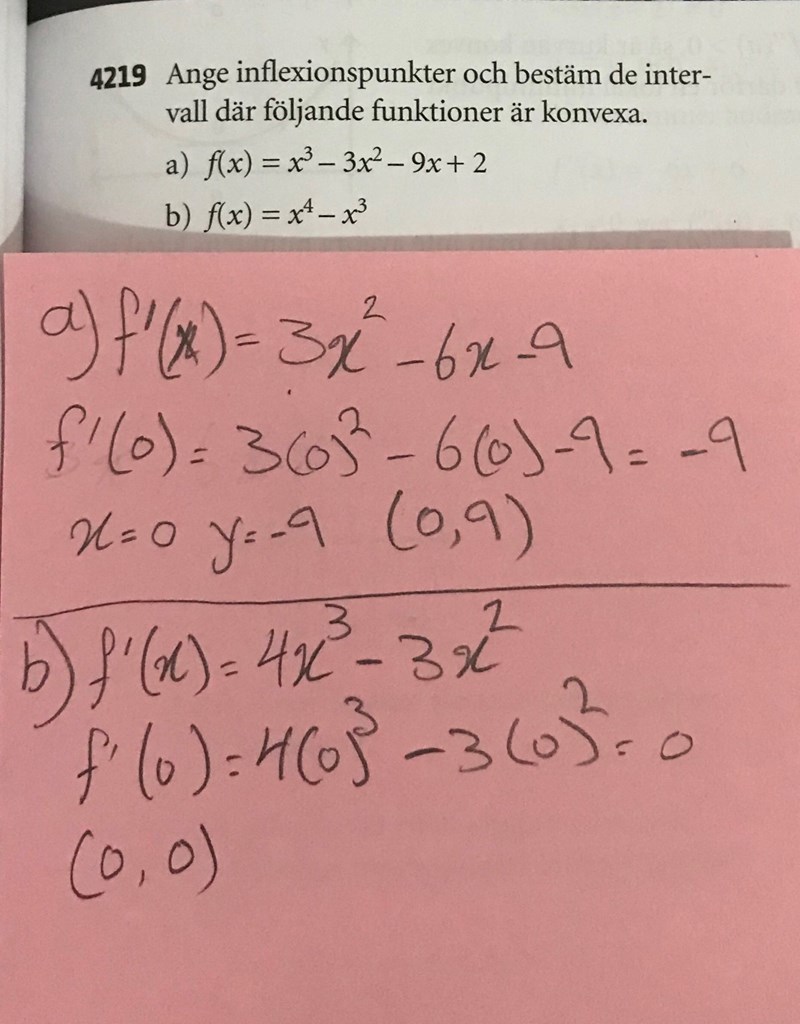 4219 Ange inflexionspunkter och bestäm de inter-
vall där följande funktioner är konvexa.
a) f(x) = x³ – 3x² – 9x + 2
b) f(x) = x⁴ – x³
a) f'(x) = 3x² - 6x - 9
f'(0) = 3(0)² - 6(0) - 9 = -9
x=0 y=-9 (0,9)
b) f'(x) = 4x³ - 3x²
f'(0) = 4(0)³ - 3(0)² = 0
(0,0)